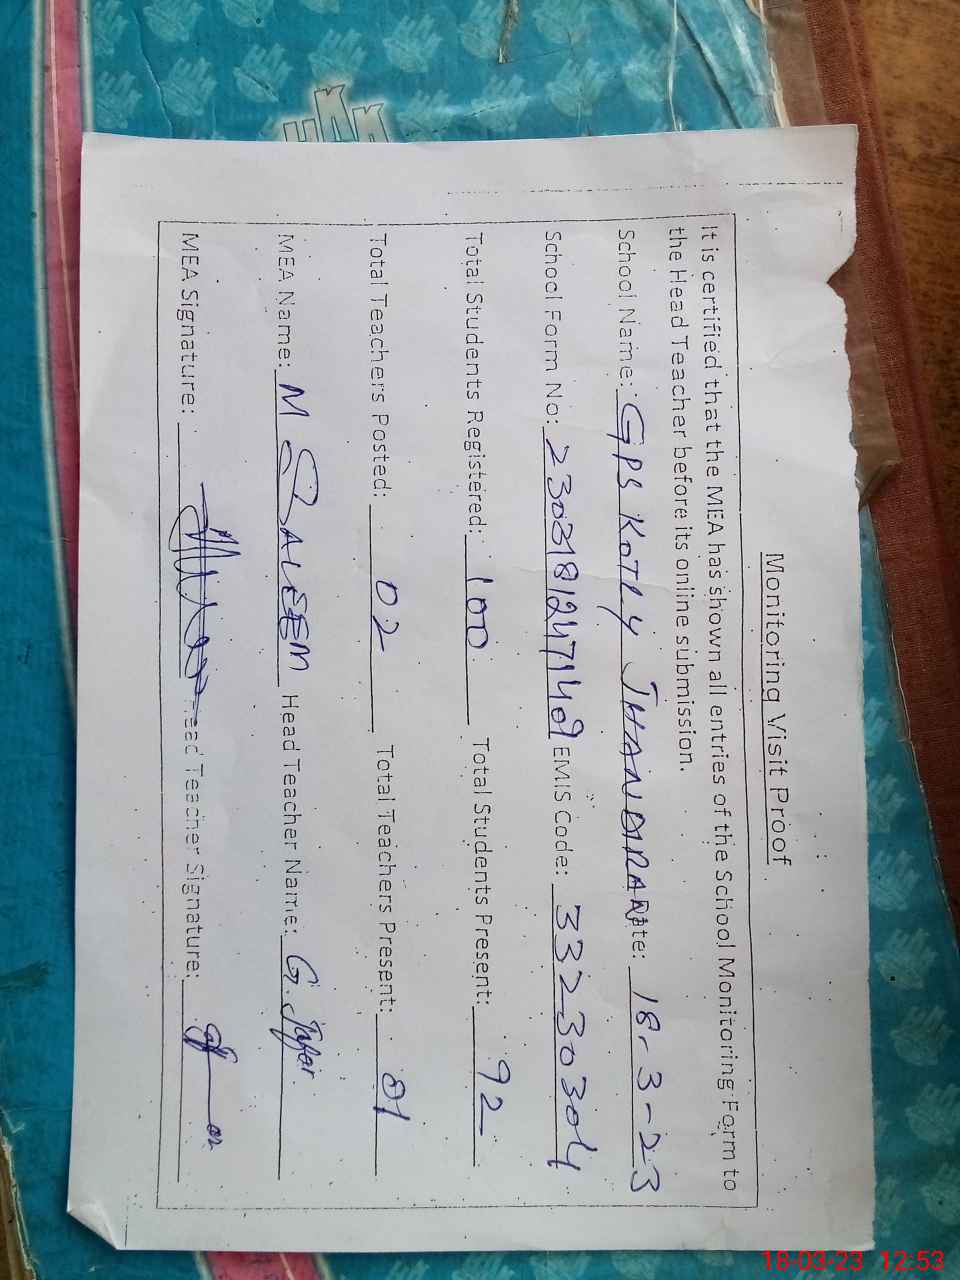 Monitoring Visit Proof
It is certified that the MEA has shown all entries of the School Monitoring Form to
the Head Teacher before its online submission.
School Name: GPS KOTLY JHANDIRAN Date: 18-3-23
School Form No: 2303181247140 EMIS Code: 33230304
Total Students Registered: 100 Total Students Present: 92
Total Teachers Posted: 02 Total Teachers Present: 01
MEA Name: M SALEEM Head Teacher Name: G. Jafar
MEA Signature: Head Teacher Signature:
18-03-23 12:53